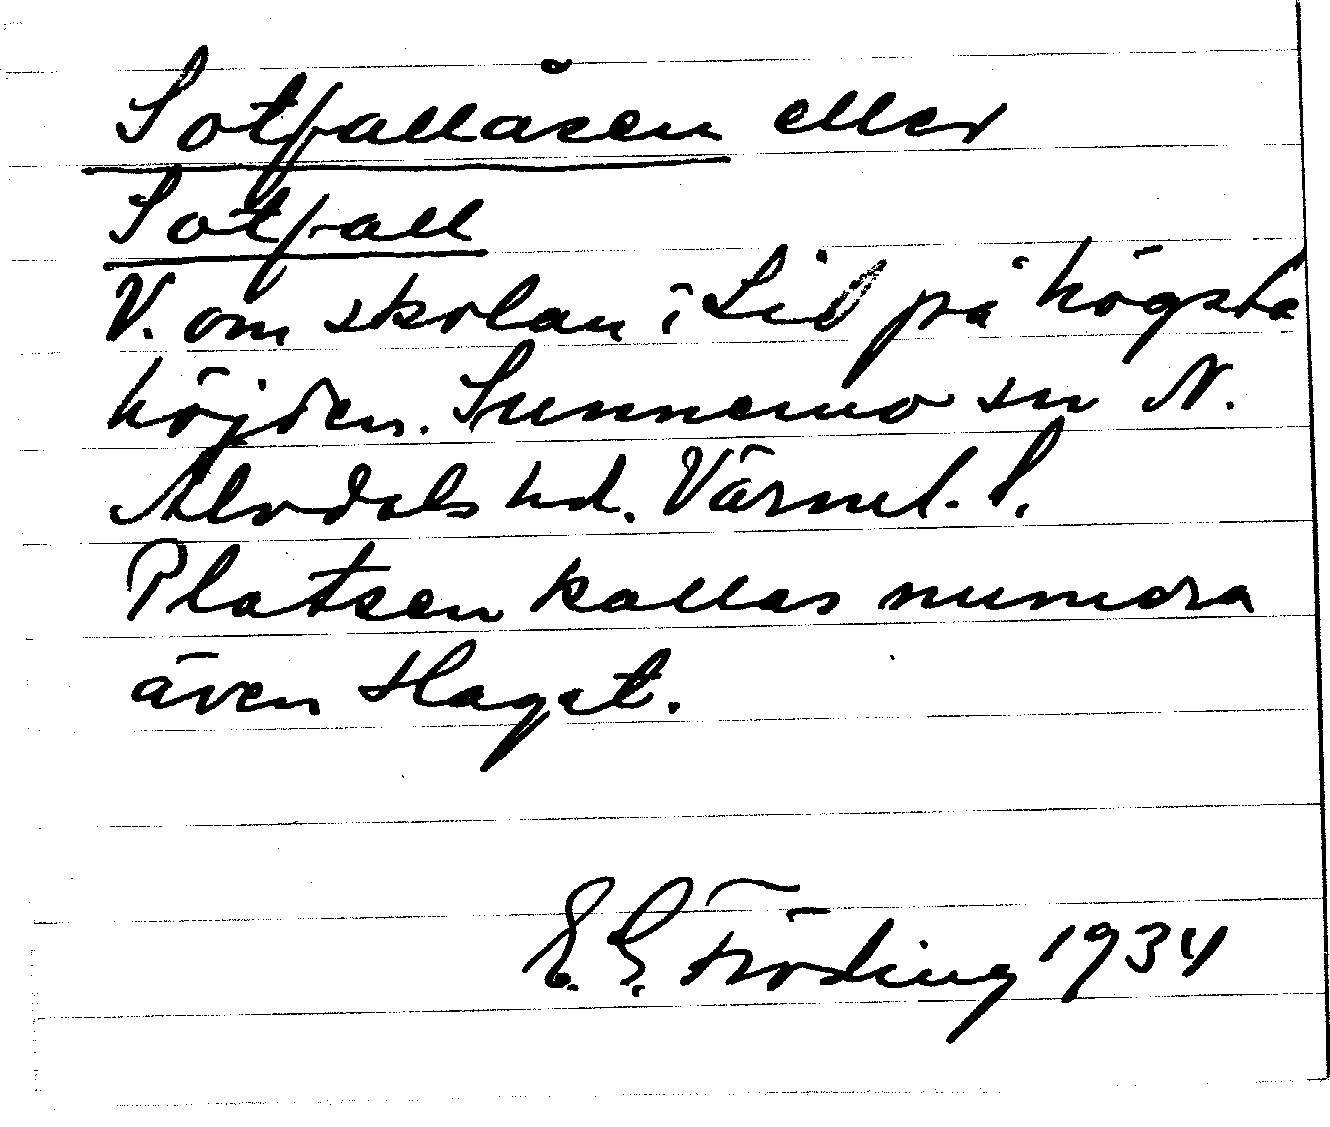 Sotfallåsen eller
Sotfall
V. om skolan i Lid på högsta
höjden. Sunnemo sn N.
Älvdals hd. Värml. l.
Platsen kallas numera
även Haget.
E. G. Fröding 1934